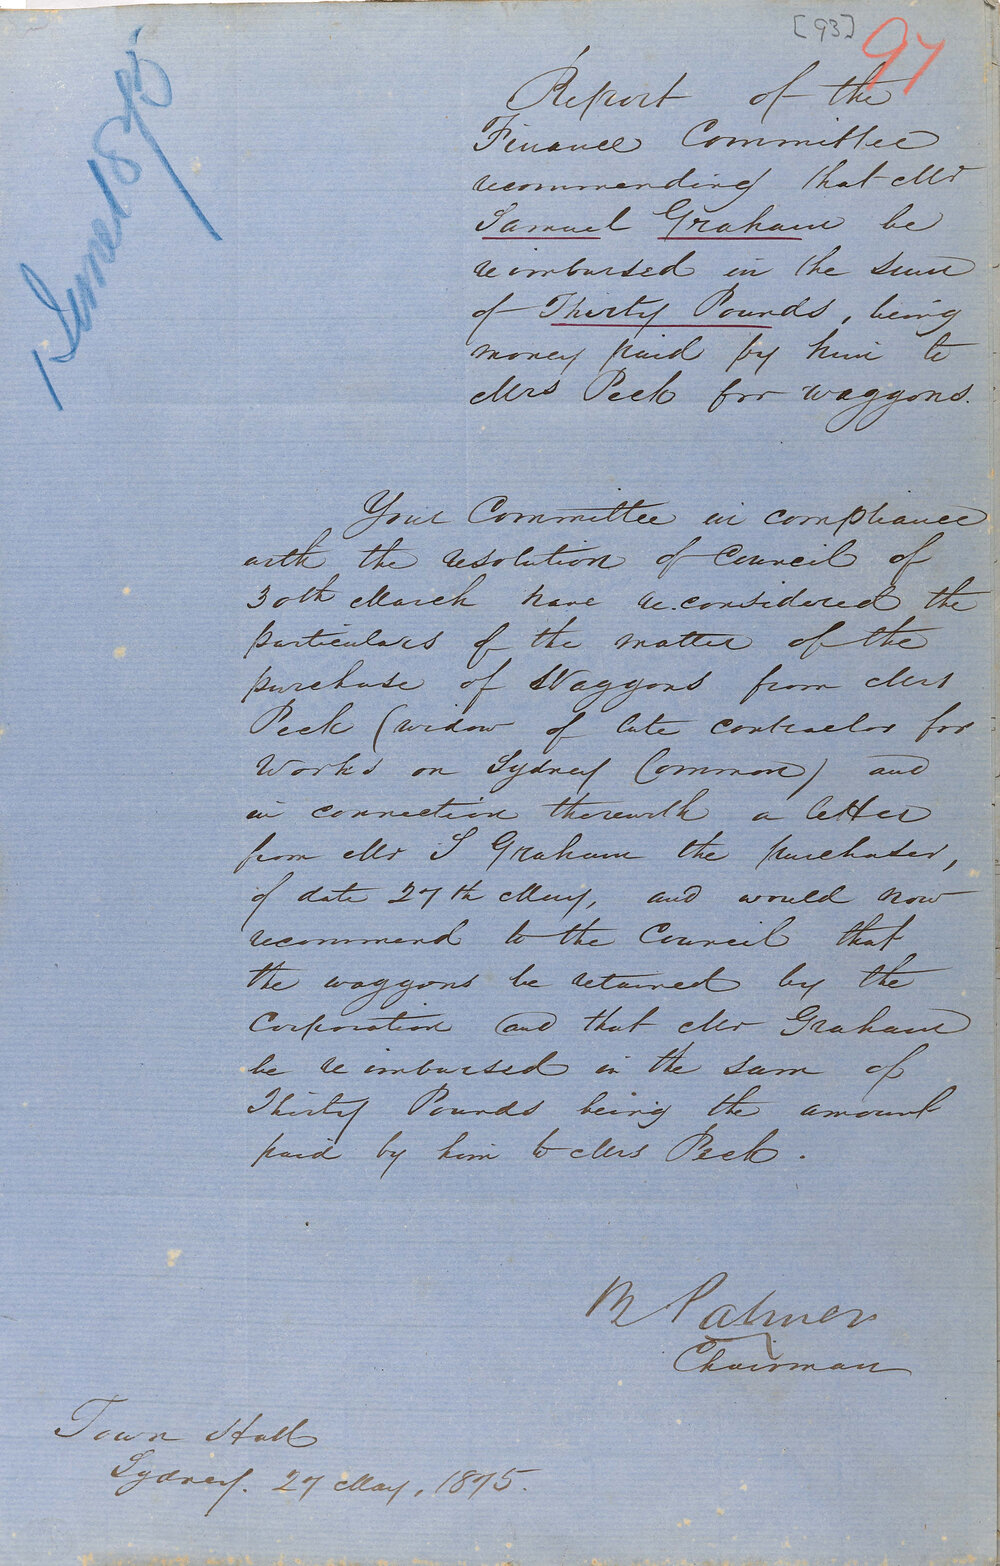 [93] 97
1 June 1875
Report of the
Finance Committee
recommending that Mr
Samuel Graham be
reimbursed in the sum
of Thirty Pounds, being
money paid by him to
Mrs Peck for waggons.
Your Committee in compliance
with the resolution of Council of
30th March have re-considered the
particulars of the matter of the
purchase of Waggons from Mrs
Peck (widow of late contractor for
Works on Sydney Common) and
in connection therewith a letter
from Mr S Graham the purchaser,
of date 27th May, and would now
recommend to the Council that
the waggons be retained by the
Corporation and that Mr Graham
be reimbursed in the sum of
Thirty Pounds being the amount
paid by him to Mrs Peck.
M Palmer
Chairman
Town Hall
Sydney. 27 May, 1875.